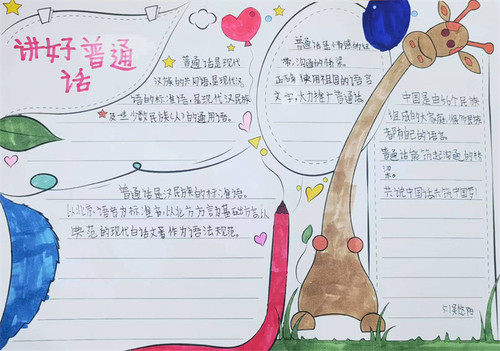 讲好普通
话
普通话是现代
汉族的共同语,是现代汉
语的标准语,是现代汉民族
及世少数民族(人)的通用语。
普通话是汉民族的标准语。
以北京语音为标准音,以北方方言为基础方言,以
典范的现代白话文著作为语法规范。
普通话是情感的纽
带,沟通的桥梁。
正确使用祖国的语言
文字,大力推广普通话。
中国是由56个民族
组成的大家庭,
都有自己的语言。
普通话能筑起沟通的桥
梁。
共说中国话,共筑中国梦!